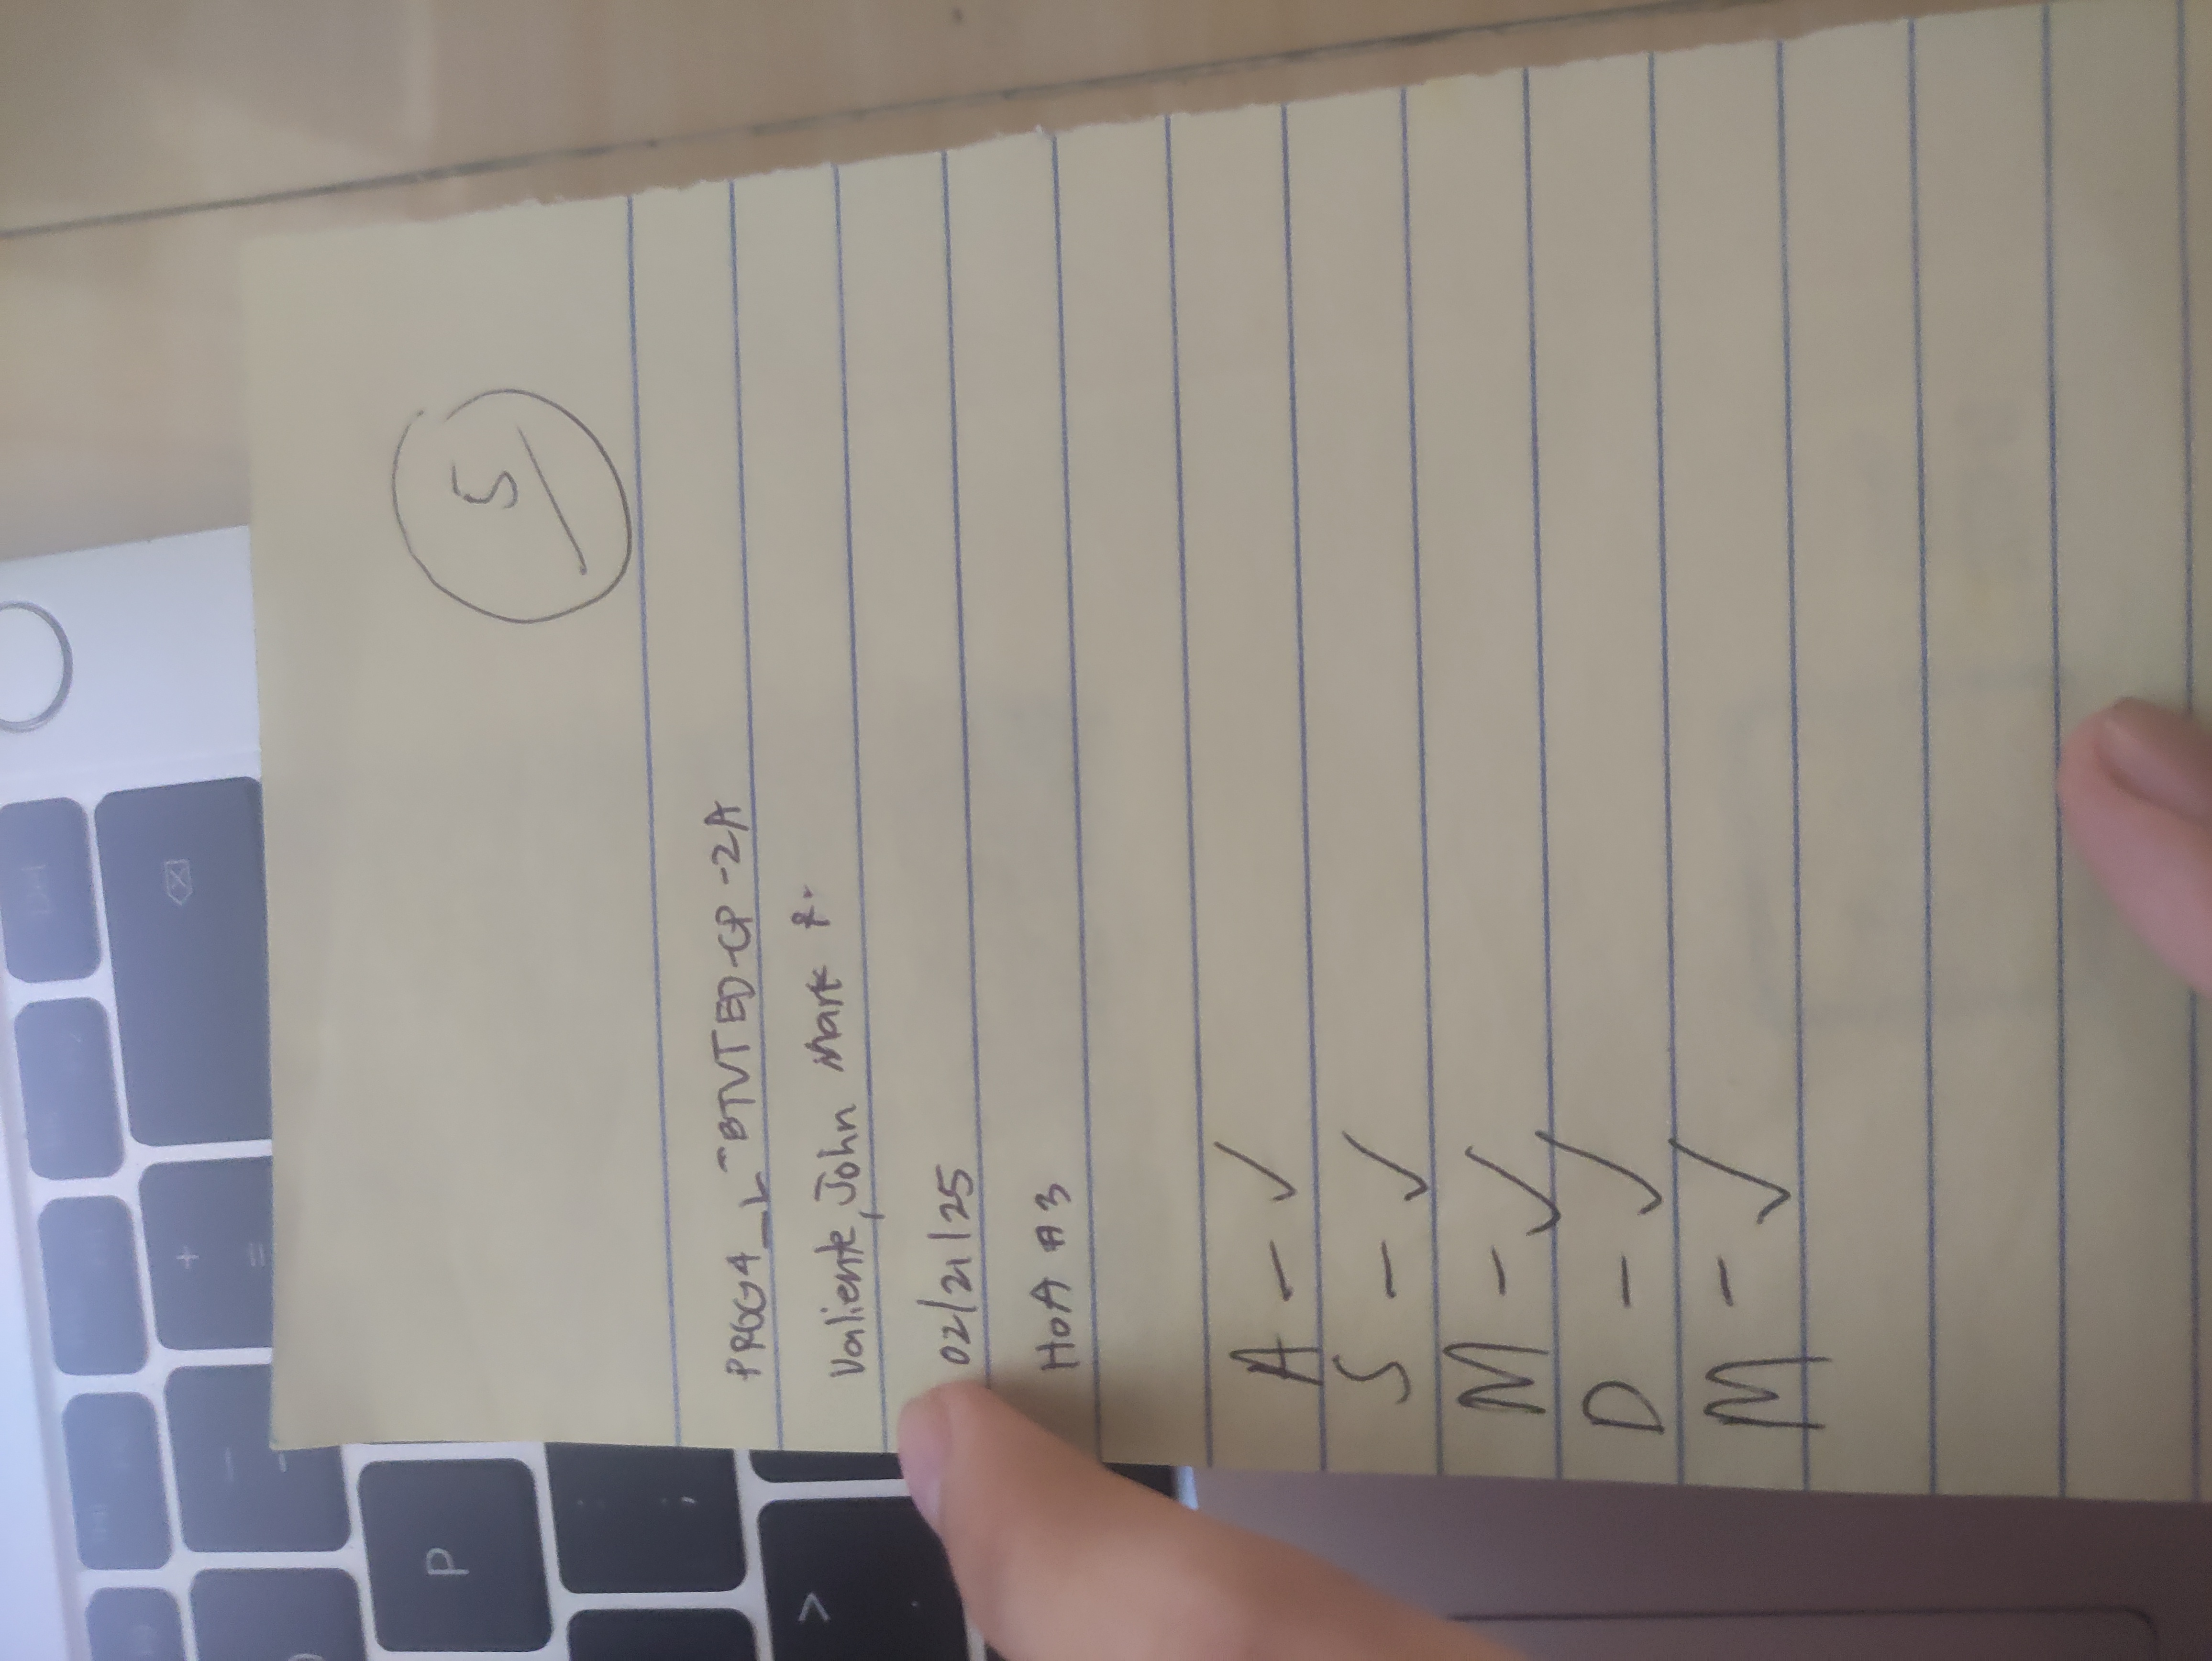 +
=
P
;
>
.
5
PROG4_L-BTVTED-CP-2A
Valiente, John Mark R.
02/21/25
HOA #3
A - ✓
S - ✓
M - ✓
D - ✓
M - ✓